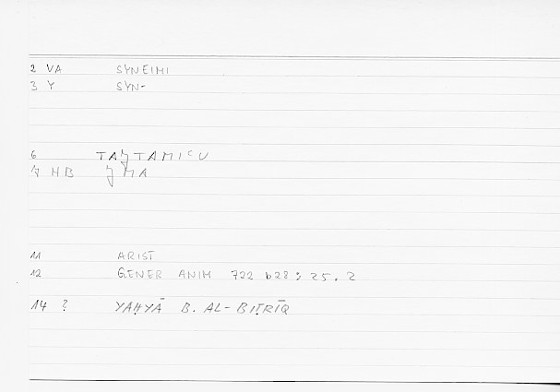 2 VA SYNEIMI
3 Y SYN-
6 TAǦTAMIᶜU
7 HB ǦMA
11 ARIST
12 GENER ANIM 722 b28; 25.2
14 ? YAḤYĀ B. AL-BIṬRĪQ